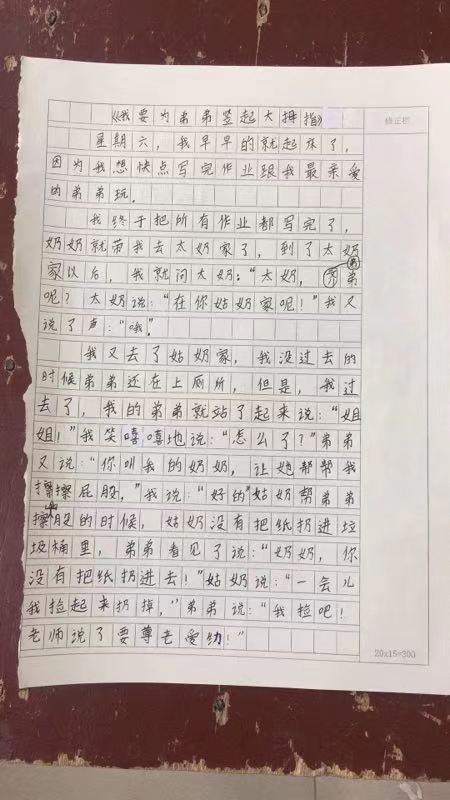 《我要为弟弟竖起大拇指》
修正栏
星期六，我早早的就起床了，
因为我想快点写完作业跟我最亲爱
的弟弟玩。
我终于把所有作业都写完了，
奶奶就带我去太奶家了，到了太奶
家以后，我就问太奶：“太奶，弟弟
呢？太奶说：“在你姑奶家呢！”我又
说了声：“哦”
我又去了姑奶家，我没过去的
时候弟弟还在上厕所，但是，我过
去了，我的弟弟就站了起来说：“姐
姐！”我笑嘻嘻地说：“怎么了？”弟弟
又说：“你叫我的奶奶，让她帮帮我
擦擦屁股，”我说：“好的”姑奶帮弟弟
擦股的时候，姑奶没有把纸扔进垃
圾桶里，弟弟看见了说：“奶奶，你
没有把纸扔进去！”姑奶说：“一会儿
我捡起来扔掉，”弟弟说：“我捡吧！
老师说了要尊老爱幼！”
20x15=300